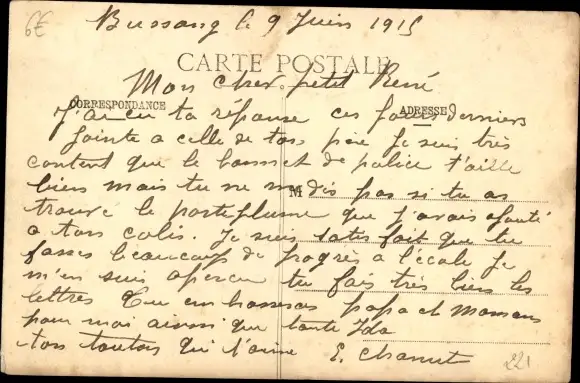 6E
Bussang le 9 Juin 1915
CARTE POSTALE
Mon cher petit René
CORRESPONDANCE
ADRESSE
J'ai eu ta réponse ces jours derniers
jointe a celle de ton père je suis très
content que le bonnet de police t'aille
bien mais tu ne me dis pas si tu as
M
trouvé le porteplume que j'avais ajouté
a ton colis. Je suis satisfait que tu
fasses beaucoup de progrès a l'école je
m'en suis aperçu tu fais très bien tes
lettres Tu embrasseras papa et maman
pour moi ainsi que tante Ida
ton tonton qui t'aime E. Chanut
221